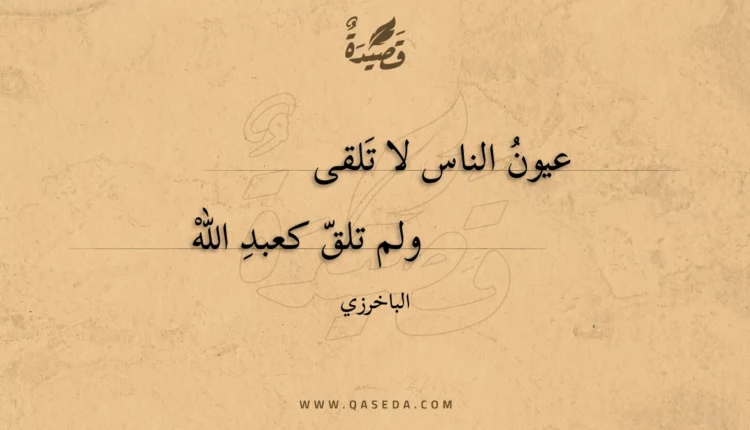 قَصِيْدَةٌ
عيونُ الناس لا تَلقى
ولم تلقّ كعبدِ اللهْ
الباخرزي
WWW.QASEDA.COM